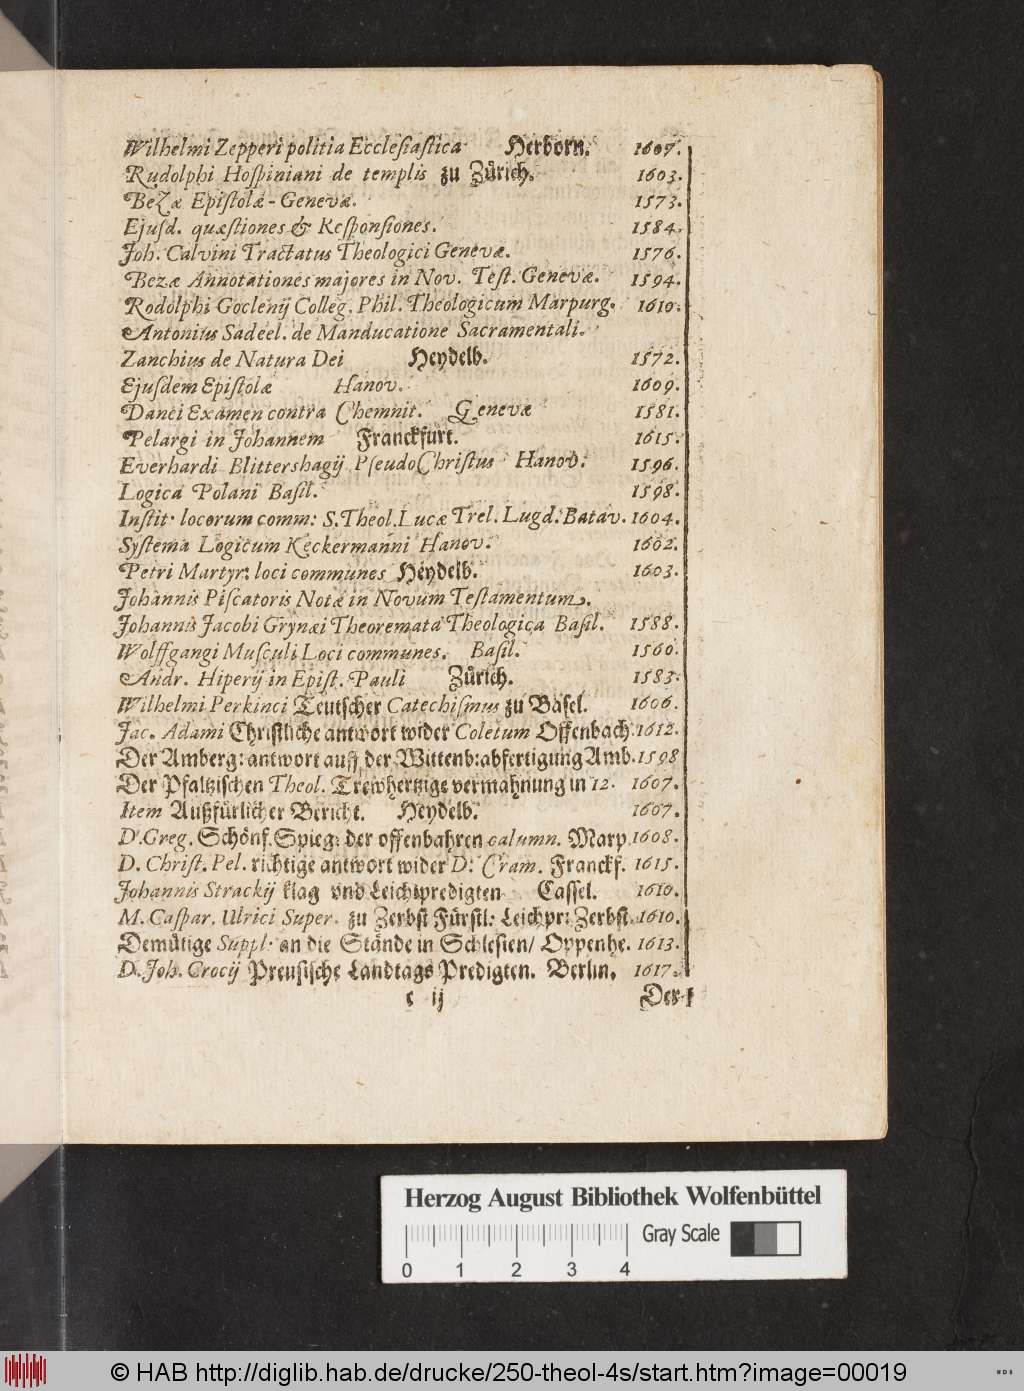 Wilhelmi Zepperi politia Ecclesiastica Herborn. 1607.
Rudolphi Hospiniani de templis zu Zürich. 1603.
Bezæ Epistolæ - Genevæ. 1573.
Ejusd. quæstiones & Responsiones. 1584.
Joh. Calvini Tractatus Theologici Genevæ. 1576.
Bezæ Annotationes majores in Nov. Test. Genevæ. 1594.
Rodolphi Goclenij Colleg. Phil. Theologicum Marpurg. 1610.
Antonius Sadeel. de Manducatione Sacramentali.
Zanchius de Natura Dei Heydelb. 1572.
Ejusdem Epistolæ Hanov. 1609.
Danei Examen contra Chemnit. Genevæ 1581.
Pelargi in Johannem Franckfurt. 1615.
Everhardi Blittershagij PseudoChristus Hanov. 1596.
Logica Polani Basil. 1598.
Instit. locorum comm: S. Theol. Lucæ Trel. Lugd. Batav. 1604.
Systema Logicum Keckermanni Hanov. 1602.
Petri Martyr: loci communes Heydelb. 1603.
Johannis Piscatoris Notæ in Novum Testamentum.
Johannis Jacobi Grynæi Theoremata Theologica Basil. 1588.
Wolffgangi Musculi Loci communes. Basil. 1560.
Andr. Hiperij in Epist. Pauli Zürich. 1583.
Wilhelmi Perkinci Teutscher Catechismus zu Basel. 1606.
Jac. Adami Christliche antwort wider Coletum Offenbach. 1612.
Der Amberg: antwort auff der Wittenb: abfertigung Amb. 1598
Der Pfaltzischen Theol. Trewhertzige vermahnung in 12. 1607.
Item Außfürlicher Bericht. Heydelb. 1607.
D. Greg. Schönf. Spieg: der offenbahren calumn. Marp. 1608.
D. Christ. Pel. richtige antwort wider D. Cram. Franckf. 1615.
Johannis Strackij klag vnd Leichtpredigten Cassel. 1610.
M. Caspar. Ulrici Super. zu Zerbst Fürstl: Leichpr: Zerbst. 1610.
Demütige Suppl. an die Stände in Schlesien/ Oppenhe. 1613.
D. Joh. Crocij Preusische Landtags Predigten. Berlin. 1617.
c ij Der
Herzog August Bibliothek Wolfenbüttel
Gray Scale
0 1 2 3 4
© HAB http://diglib.hab.de/drucke/250-theol-4s/start.htm?image=00019